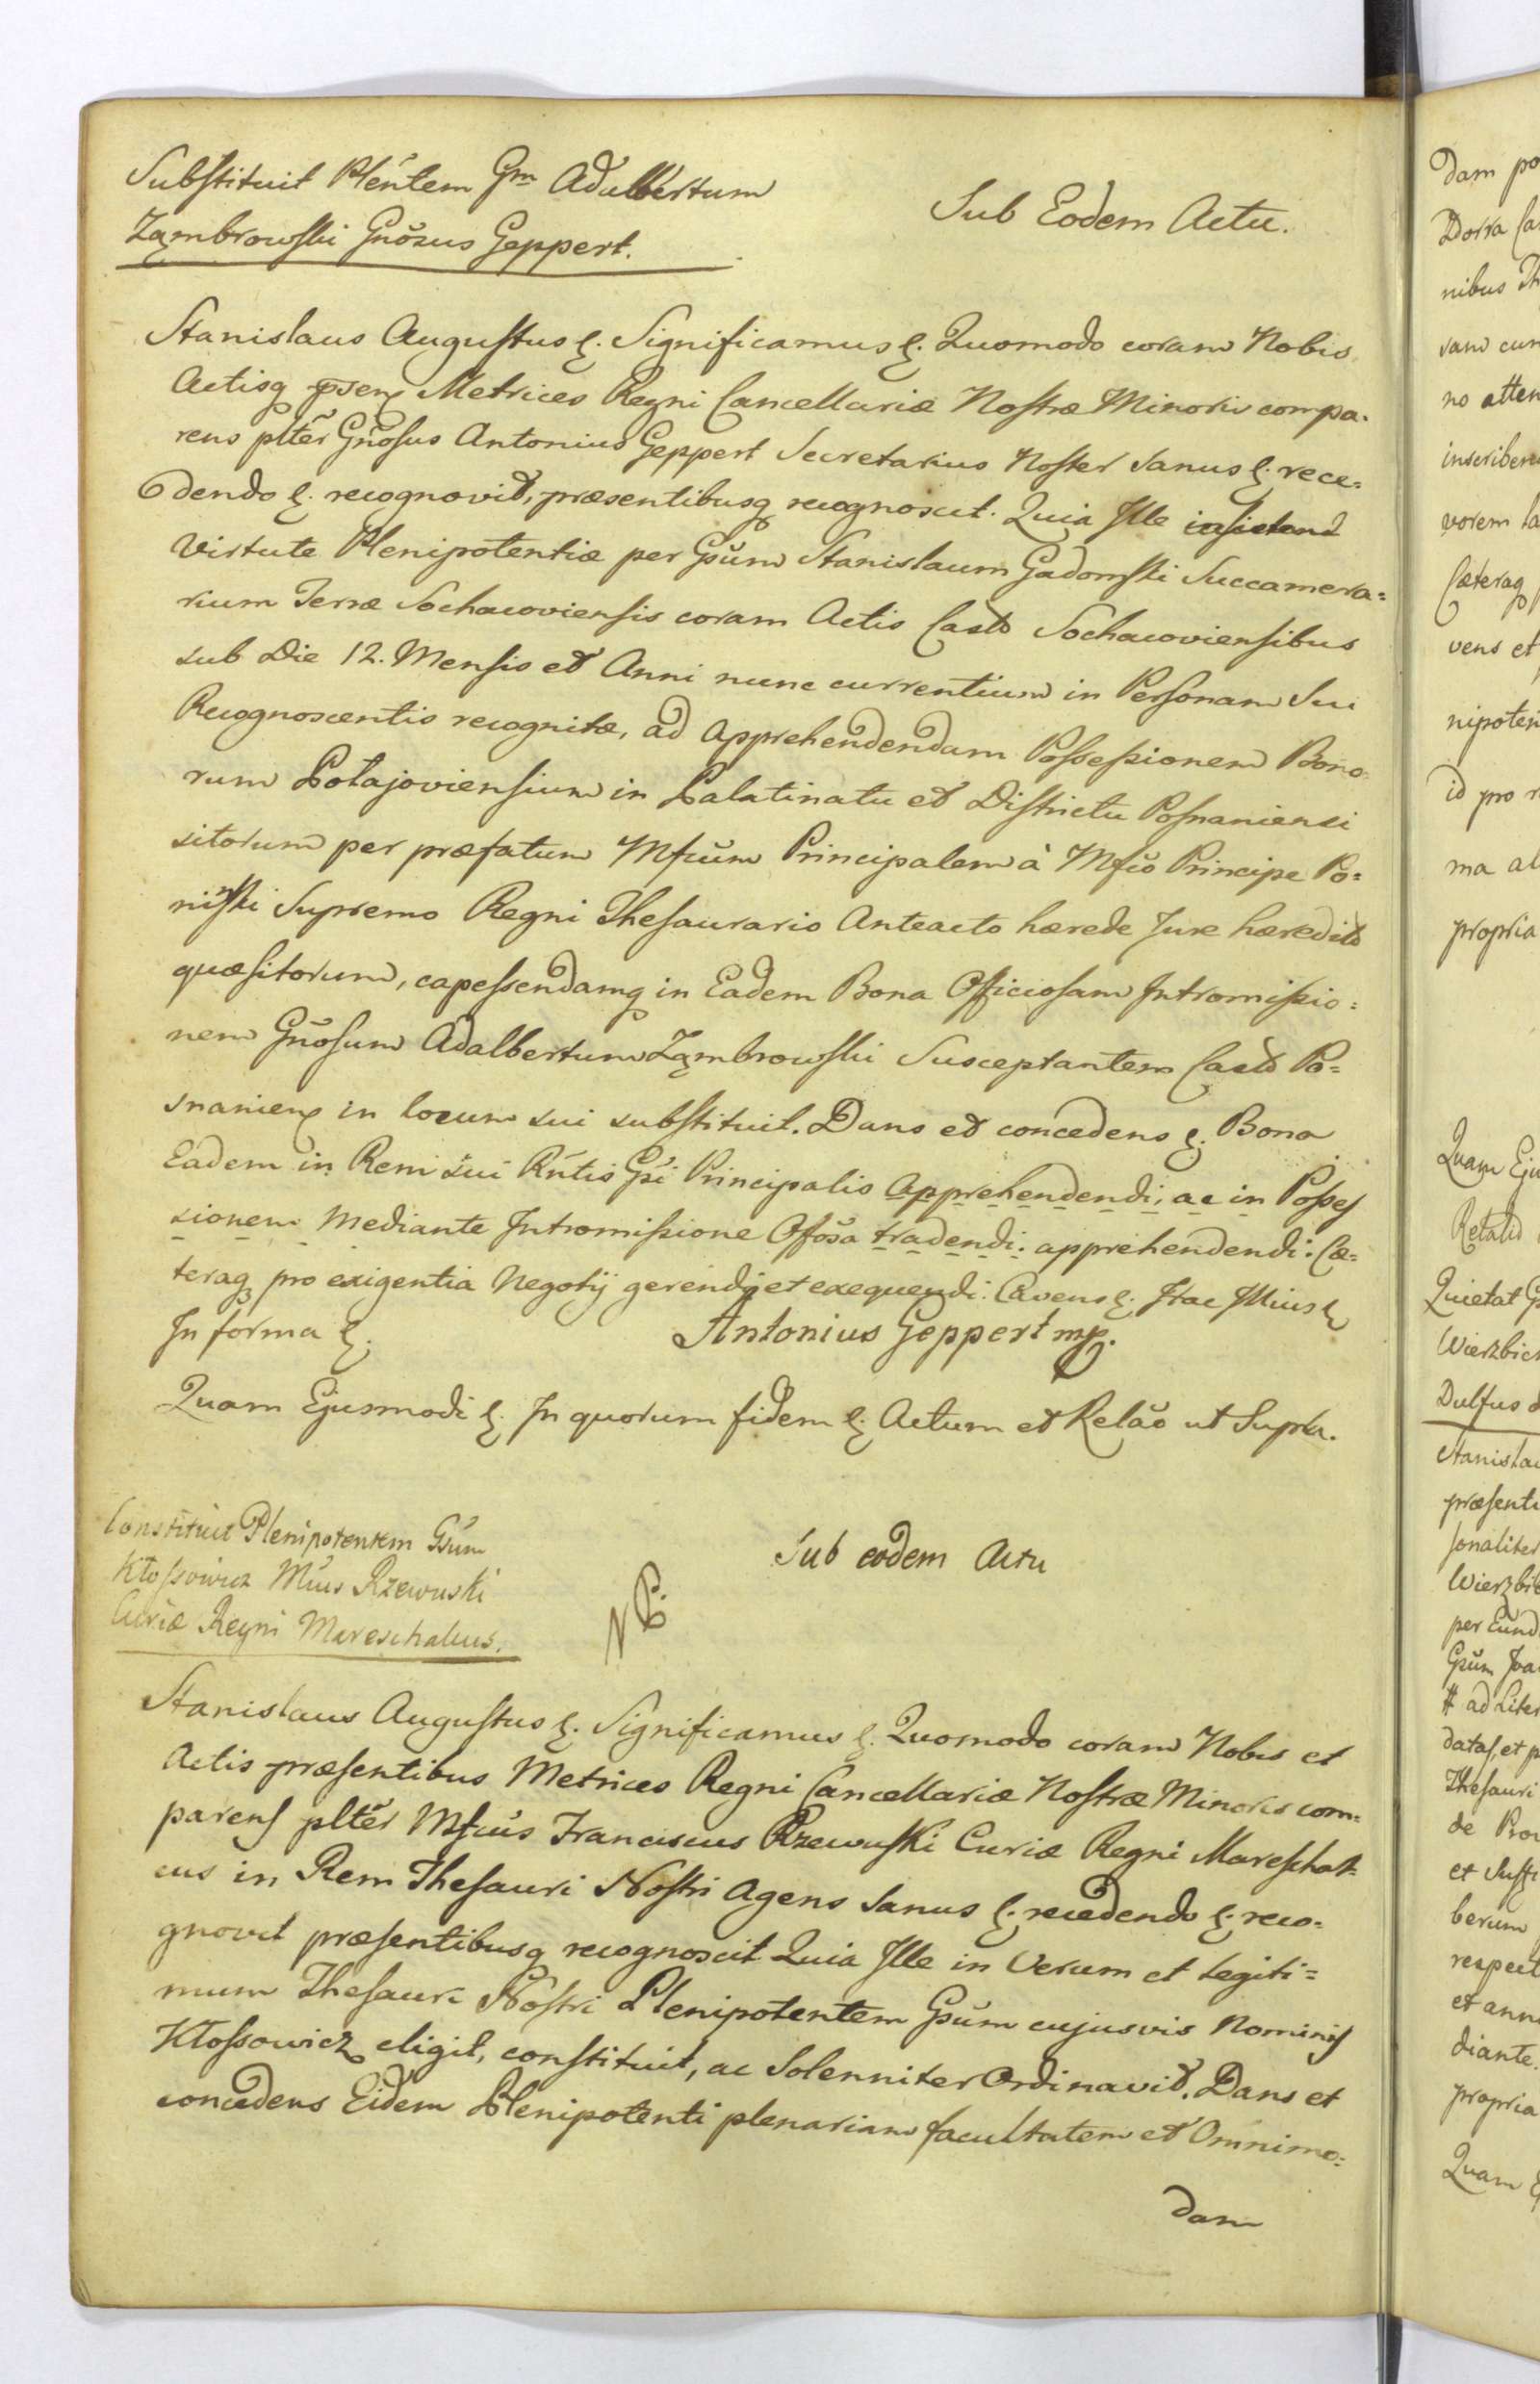 Substituit Plentem Gm Adalbertum
Zambrowski Gnosus Geppert.
Sub Eodem Actu.
Stanislaus Augustus &. Significamus &. Quomodo coram Nobis
Actisq psenz Metrices Regni Cancellariæ Nostræ Minoris compa-
rens plter Gnosus Antonius Geppert Secretarius Noster sanus &. rece-
dendo &. recognovit, præsentibusq recognoscit. Quia Ille
Virtute Plenipotentiæ per Gsum Stanislaum Gadomski Succamera=
rium Terræ Sochacoviensis coram Actis Castr Sochacoviensibus
sub Die 12. Mensis et Anni nunc currentium in Personam Sui
Recognoscentis recognitæ, ad apprehendendam Possessionem Bono-
rum Potajoviensium in Palatinatu et Districtu Posnaniensi
sitorum per præfatum Mfcum Principalem à Mfco Principe Po=
niński Supremo Regni Thesaurario Anteacto hærede Jure hæredit
quæsitorum, capessendamq in Eadem Bona Officiosam Intromissio=
nem Gnosum Adalbertum Zambrowski Susceptantem Castr Po=
snanienz in locum sui substituit. Dans et concedens &. Bona
Eadem in Rem sui Rntis Gsi Principalis apprehendendi, ac in Posses
sionem Mediante Intromissione Offosa tradendi: apprehendendi: Cæ=
teraq pro exigentia Negotij gerendi et exequendi: Cavens &. Hac Illius &
In forma &.
Antonius Geppert mp.
Quam Ejusmodi &. In quorum fidem &. Actum et Relao ut Supra.
Constituit Plenipotentem Gsum
Kłossowicz Mcus Rzewuski
Curiæ Regni Mareschalcus.
NB.
Sub eodem Actu
Stanislaus Augustus &. Significamus &. Quomodo coram Nobis et
Actis præsentibus Metrices Regni Cancellariæ Nostræ Minoris com=
parens plter Mfcus Franciscus Rzewuski Curiæ Regni Mareschal=
cus in Rem Thesauri Nostri Agens Sanus &. recedendo &. reco=
gnovit præsentibusq recognoscit Quia Ille in Verum et Legiti=
mum Thesauri Nostri Plenipotentem Gsum cujusvis Nominis
Kłossowicz eligit, constituit, ac Solenniter Ordinavit. Dans et
concedens Eidem Plenipotenti plenariam facultatem et Omnimo=
dam
dam po
Dorra
nibus
no atten
inscriben
vorem
Cæteraq
vens et
nipoten
id pro
ma al
propria
Quam Eju
Quietat
Wierzbic
Dulfus
Stanislau
præsenti
sonaliter
Wierzbic
per Eund
Gsum Joa
# ad Liter
datas, et p
Thesauri
de Pro
et
berum
respect
et anno
diante
propria
Quam